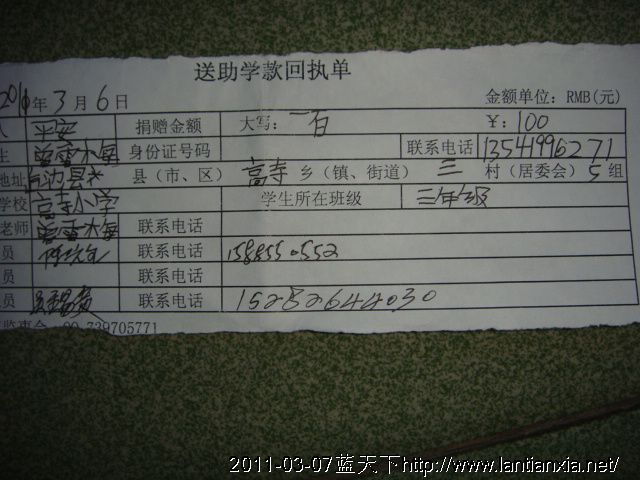 送助学款回执单
年3月6日 金额单位：RMB(元)
平安 捐赠金额 大写：一百 ￥：100
生 身份证号码 联系电话 13541996271
地址 边县 县（市、区） 高寺 乡（镇、街道） 三 村（居委会） 5 组
学校 高寺小学 学生所在班级 三年级
老师 联系电话
员 联系电话
员 联系电话
员 联系电话 15282644030
监事会 QQ 739705771
2011-03-07蓝天下http://www.lantianxia.net/